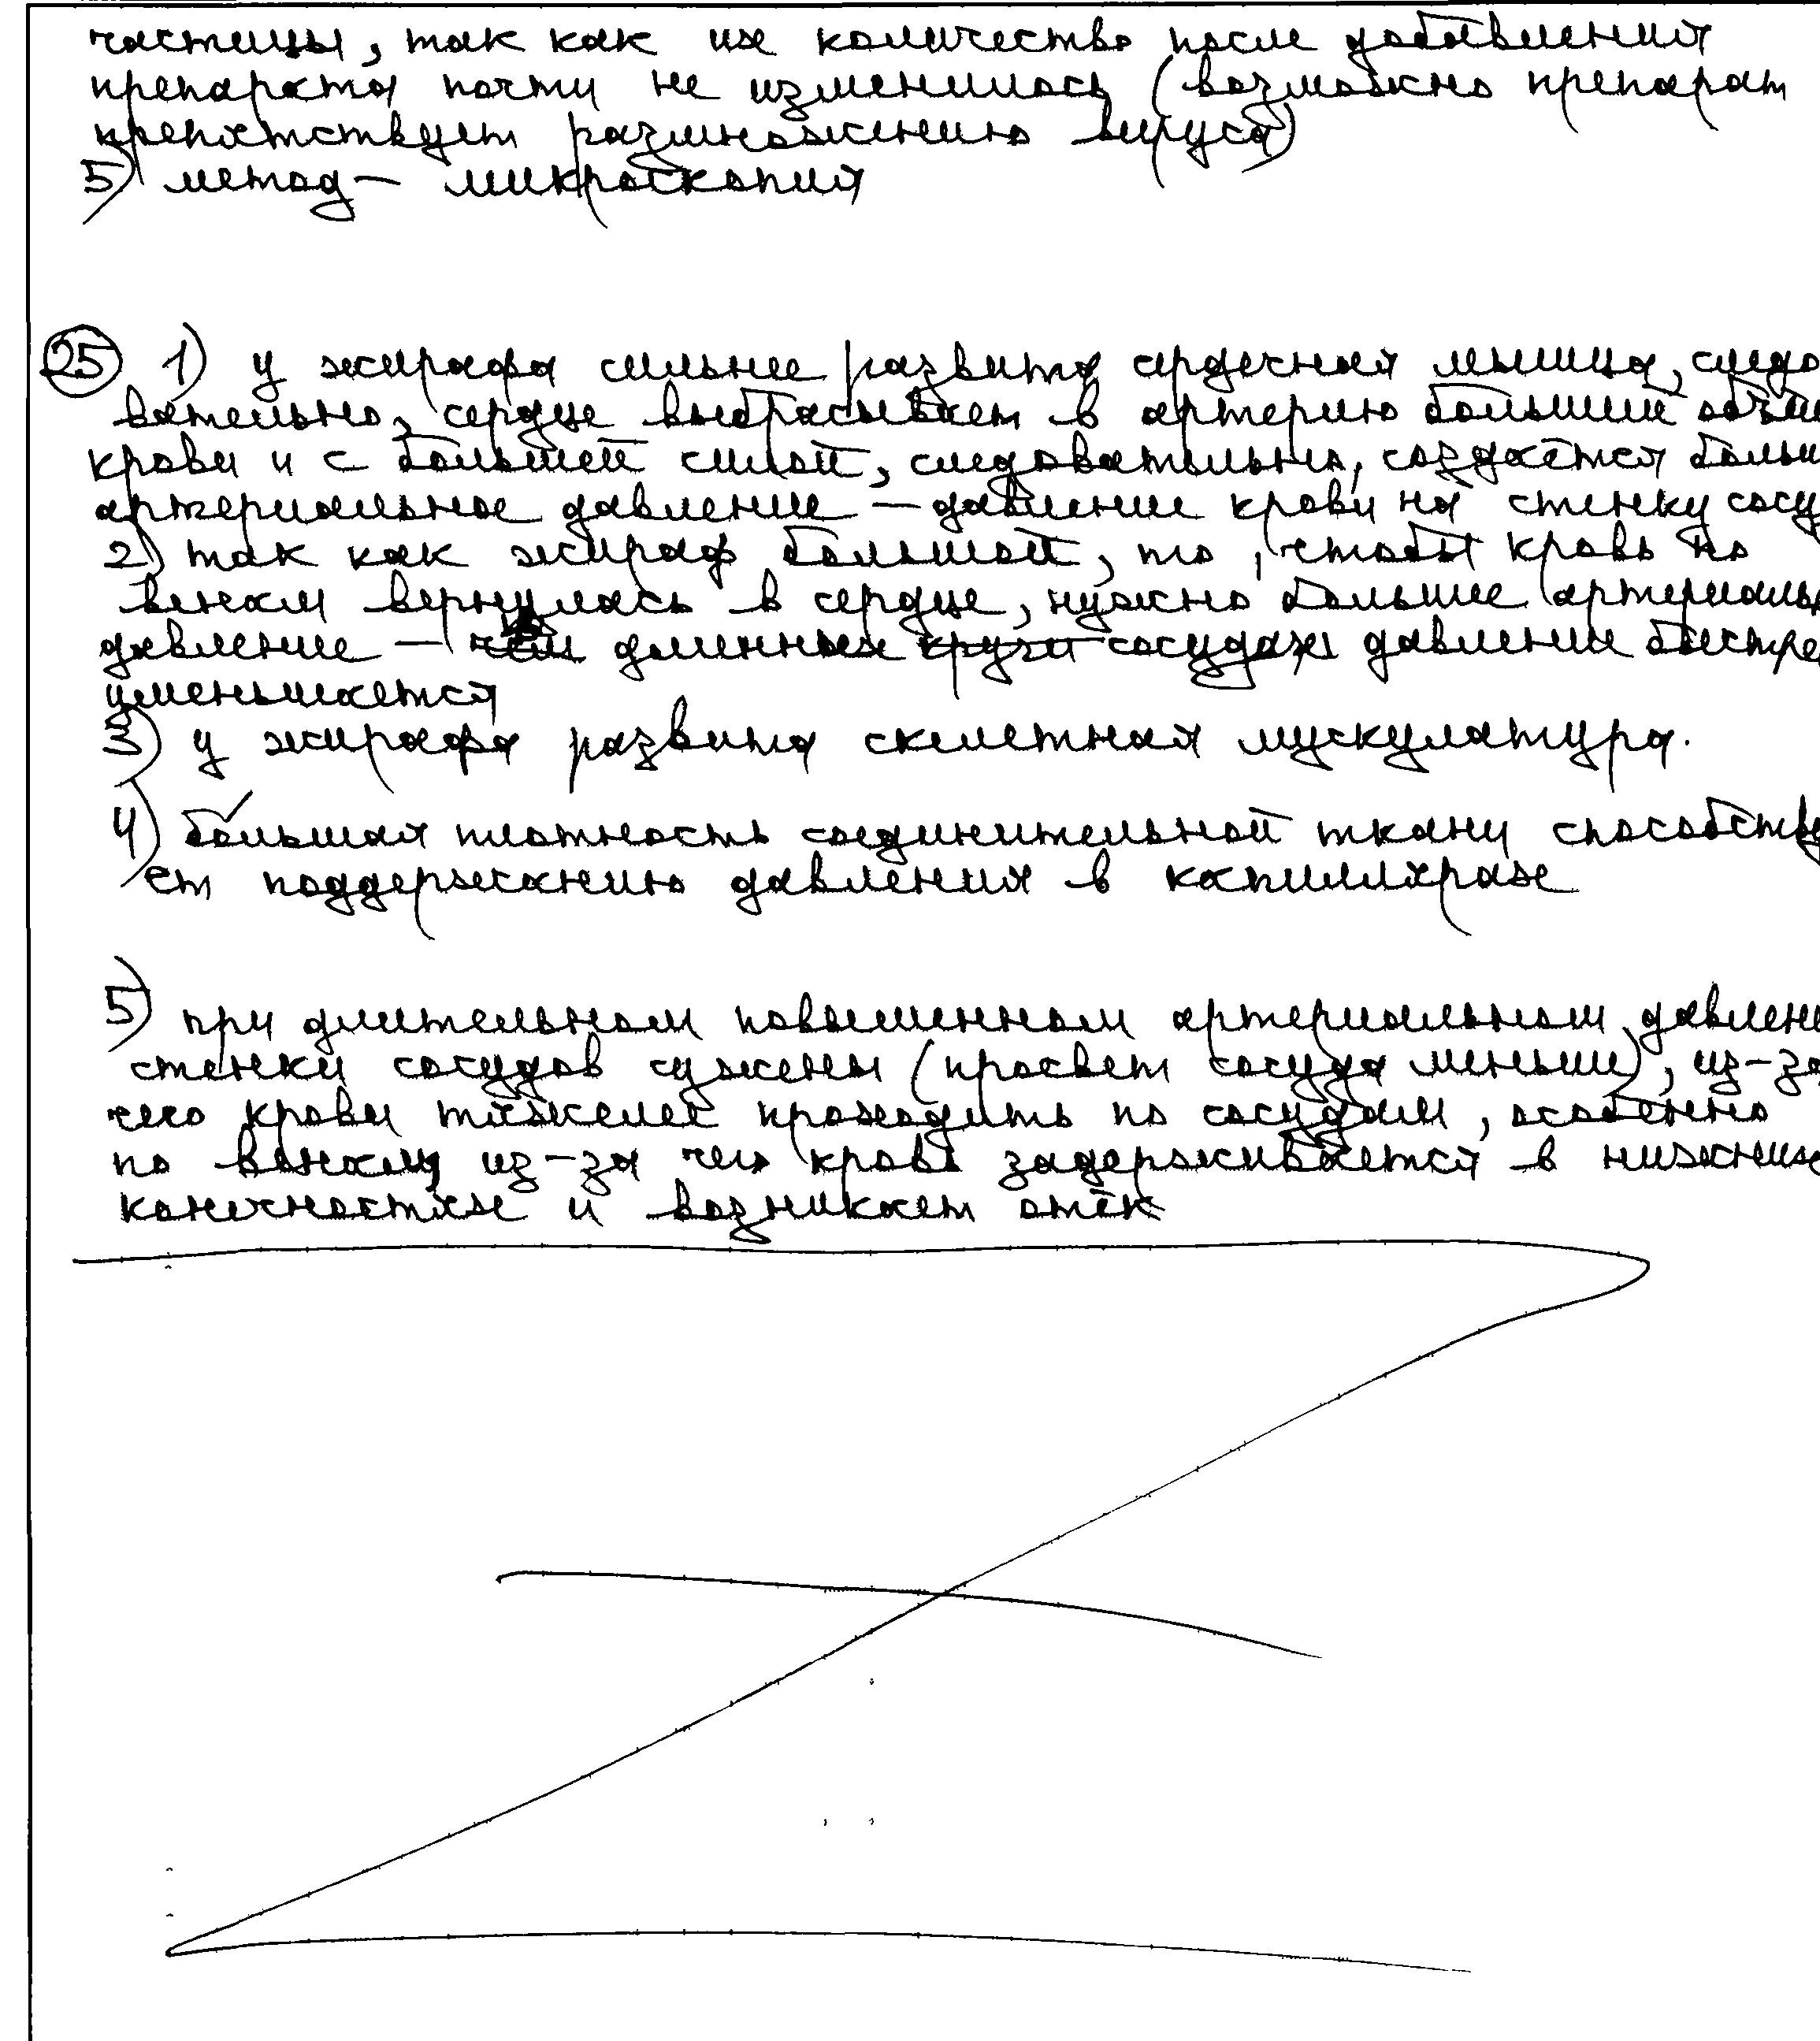 частицы, так как их количество после добавления
препарата почти не изменилось (возможно препарат
препятствует размножению вируса)
5) метод — микроскопия
25 1) у жирафа сильнее развита сердечная мышца, следо
вательно, сердце выбрасывает в артерию больший объём
крови и с большей силой, следовательно, создаётся больш
артериальное давление — давление крови на стенку сосу
2) так как жираф большой, то, чтобы кровь по
венам вернулась в сердце, нужно большее артериаль
давление — длинных сосудах давление быстре
уменьшается
3) у жирафа развита скелетная мускулатура.
4) большая плотность соединительной ткани способству
ет поддержанию давления в капиллярах
5) при длительном повышенном артериальном давлен
стенки сосудов сужены (просвет сосуда меньше), из-за
чего крови тяжелее проходить по сосудам, особенно
по венам, из-за чего кровь задерживается в нижних
конечностях и возникает отёк